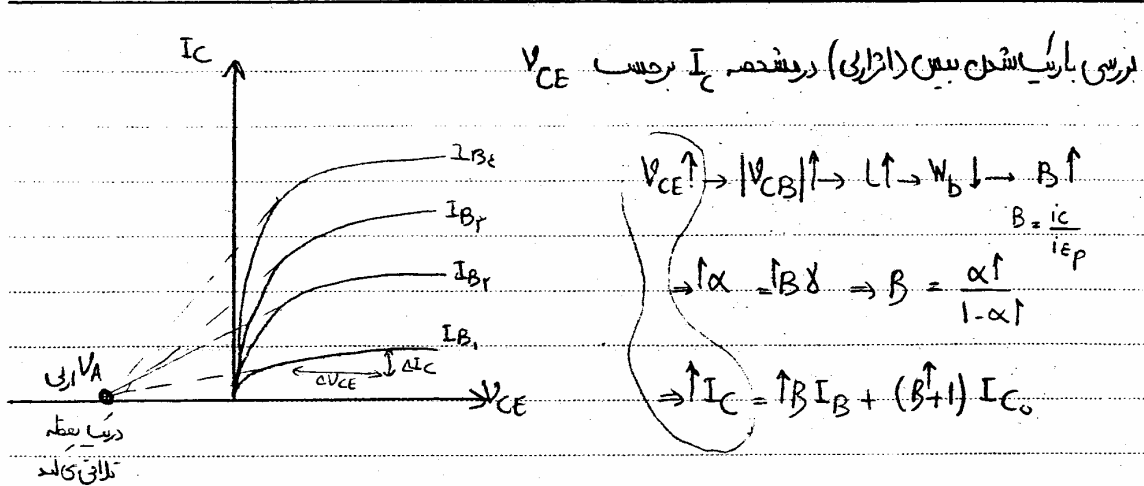 بررسی باریک شدن بیس (اثر ارلی) در مشخصه I_C برحسب V_CE
I_C
I_B٤
I_B٣
I_B٢
I_B١
ΔI_C
ΔV_CE
V_CE
V_A ارلی
در یک نقطه
تلاقی می کنند
V_CE↑ → |V_CB|↑ → L↑ → W_b↓ → B↑
B = i_C / i_Ep
⇒ ↑α = ↑Bγ ⇒ β = α↑ / 1-α↑
⇒ ↑I_C = ↑β I_B + (β↑+1) I_C₀